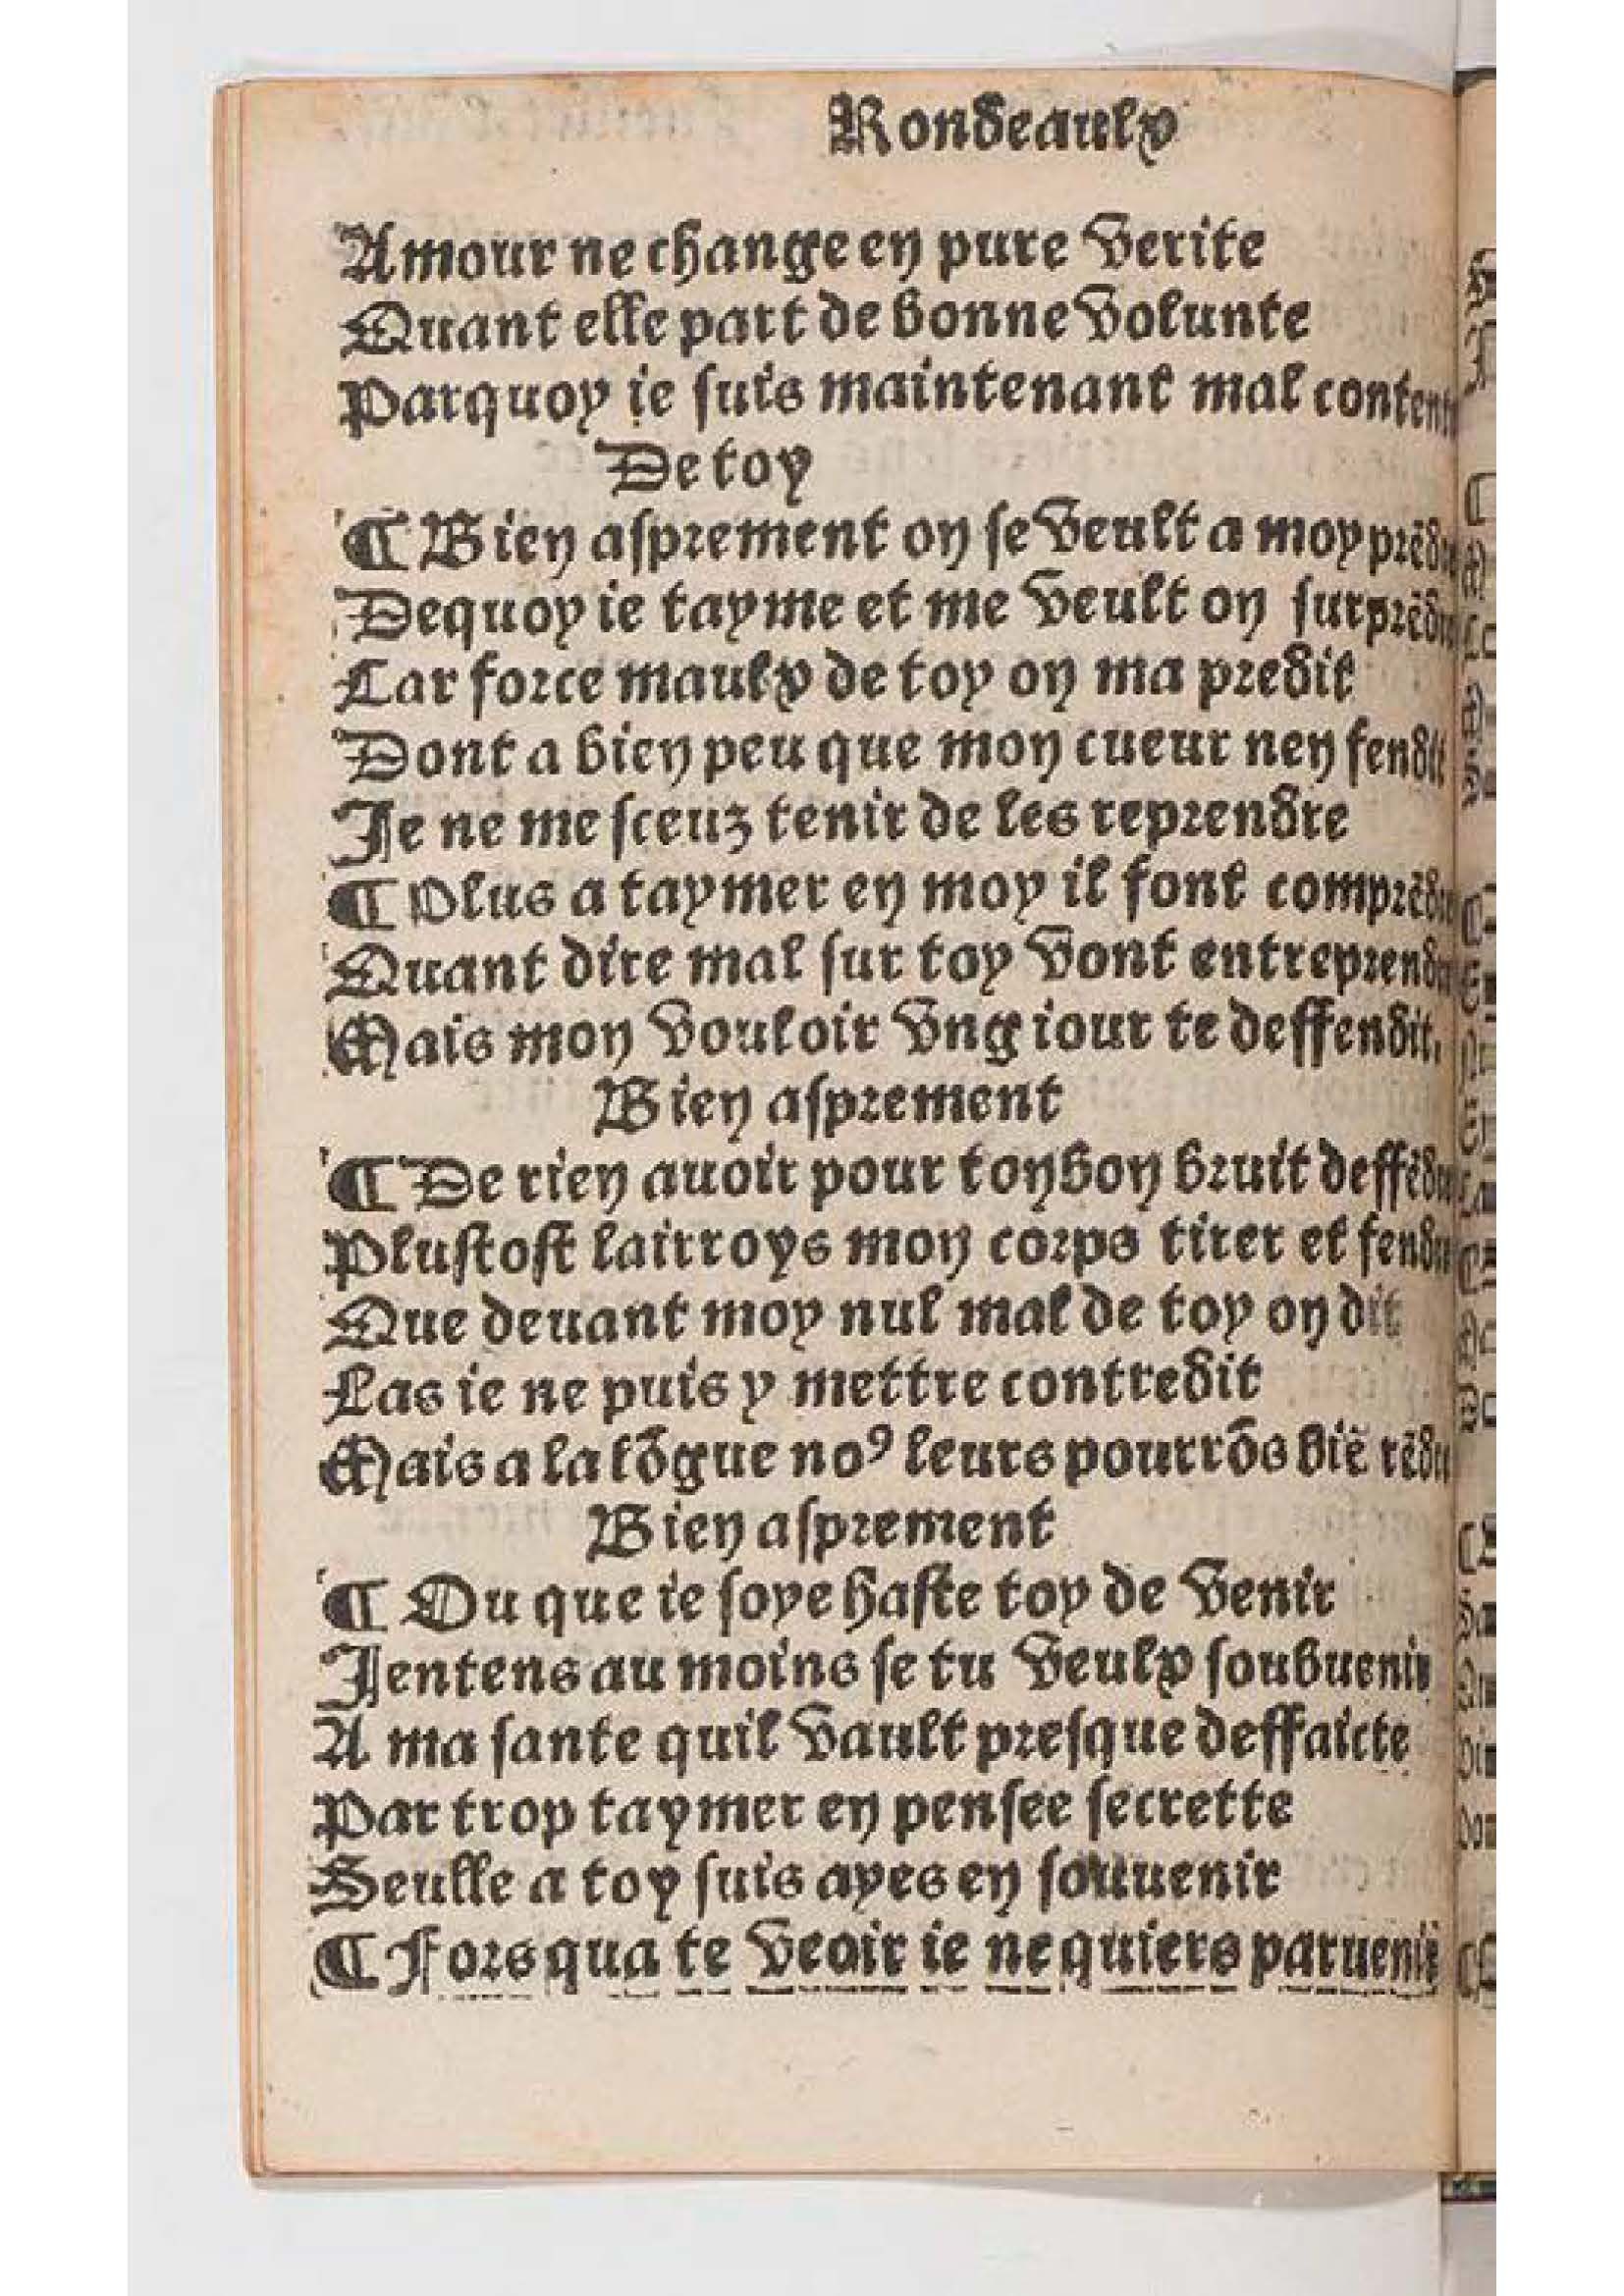 Rondeaulx
Amour ne change en pure verite
Quant elle part de bonne volunte
Parquoy ie suis maintenant mal content
De toy
¶ Bien asprement on se veult a moy prẽdre
Dequoy ie tayme et me veult on surprẽdre
Car force maulx de toy on ma predit
Dont a bien peu que mon cueur nen fendit
Je ne me sceuz tenir de les reprendre
¶ Plus a taymer en moy il font comprẽdre
Quant dire mal sur toy vont entreprendre
Mais mon vouloir vng iour te deffendit,
Bien asprement
¶ De rien auoir pour ton bon bruit deffẽdre
Plustost lairroys mon corps tirer et fendre
Que deuant moy nul mal de toy on dit
Las ie ne puis y mettre contredit
Mais a la lõgue noꝰ leurs pourrõs biẽ rẽdre
Bien asprement
¶ Ou que ie soye haste toy de venir
Jentens au moins se tu veulx soubuenir
A ma sante quil vault presque deffaicte
Par trop taymer en pensee secrette
Seulle a toy suis ayes en souuenir
¶ Fors qua te veoir ie ne quiers paruenir